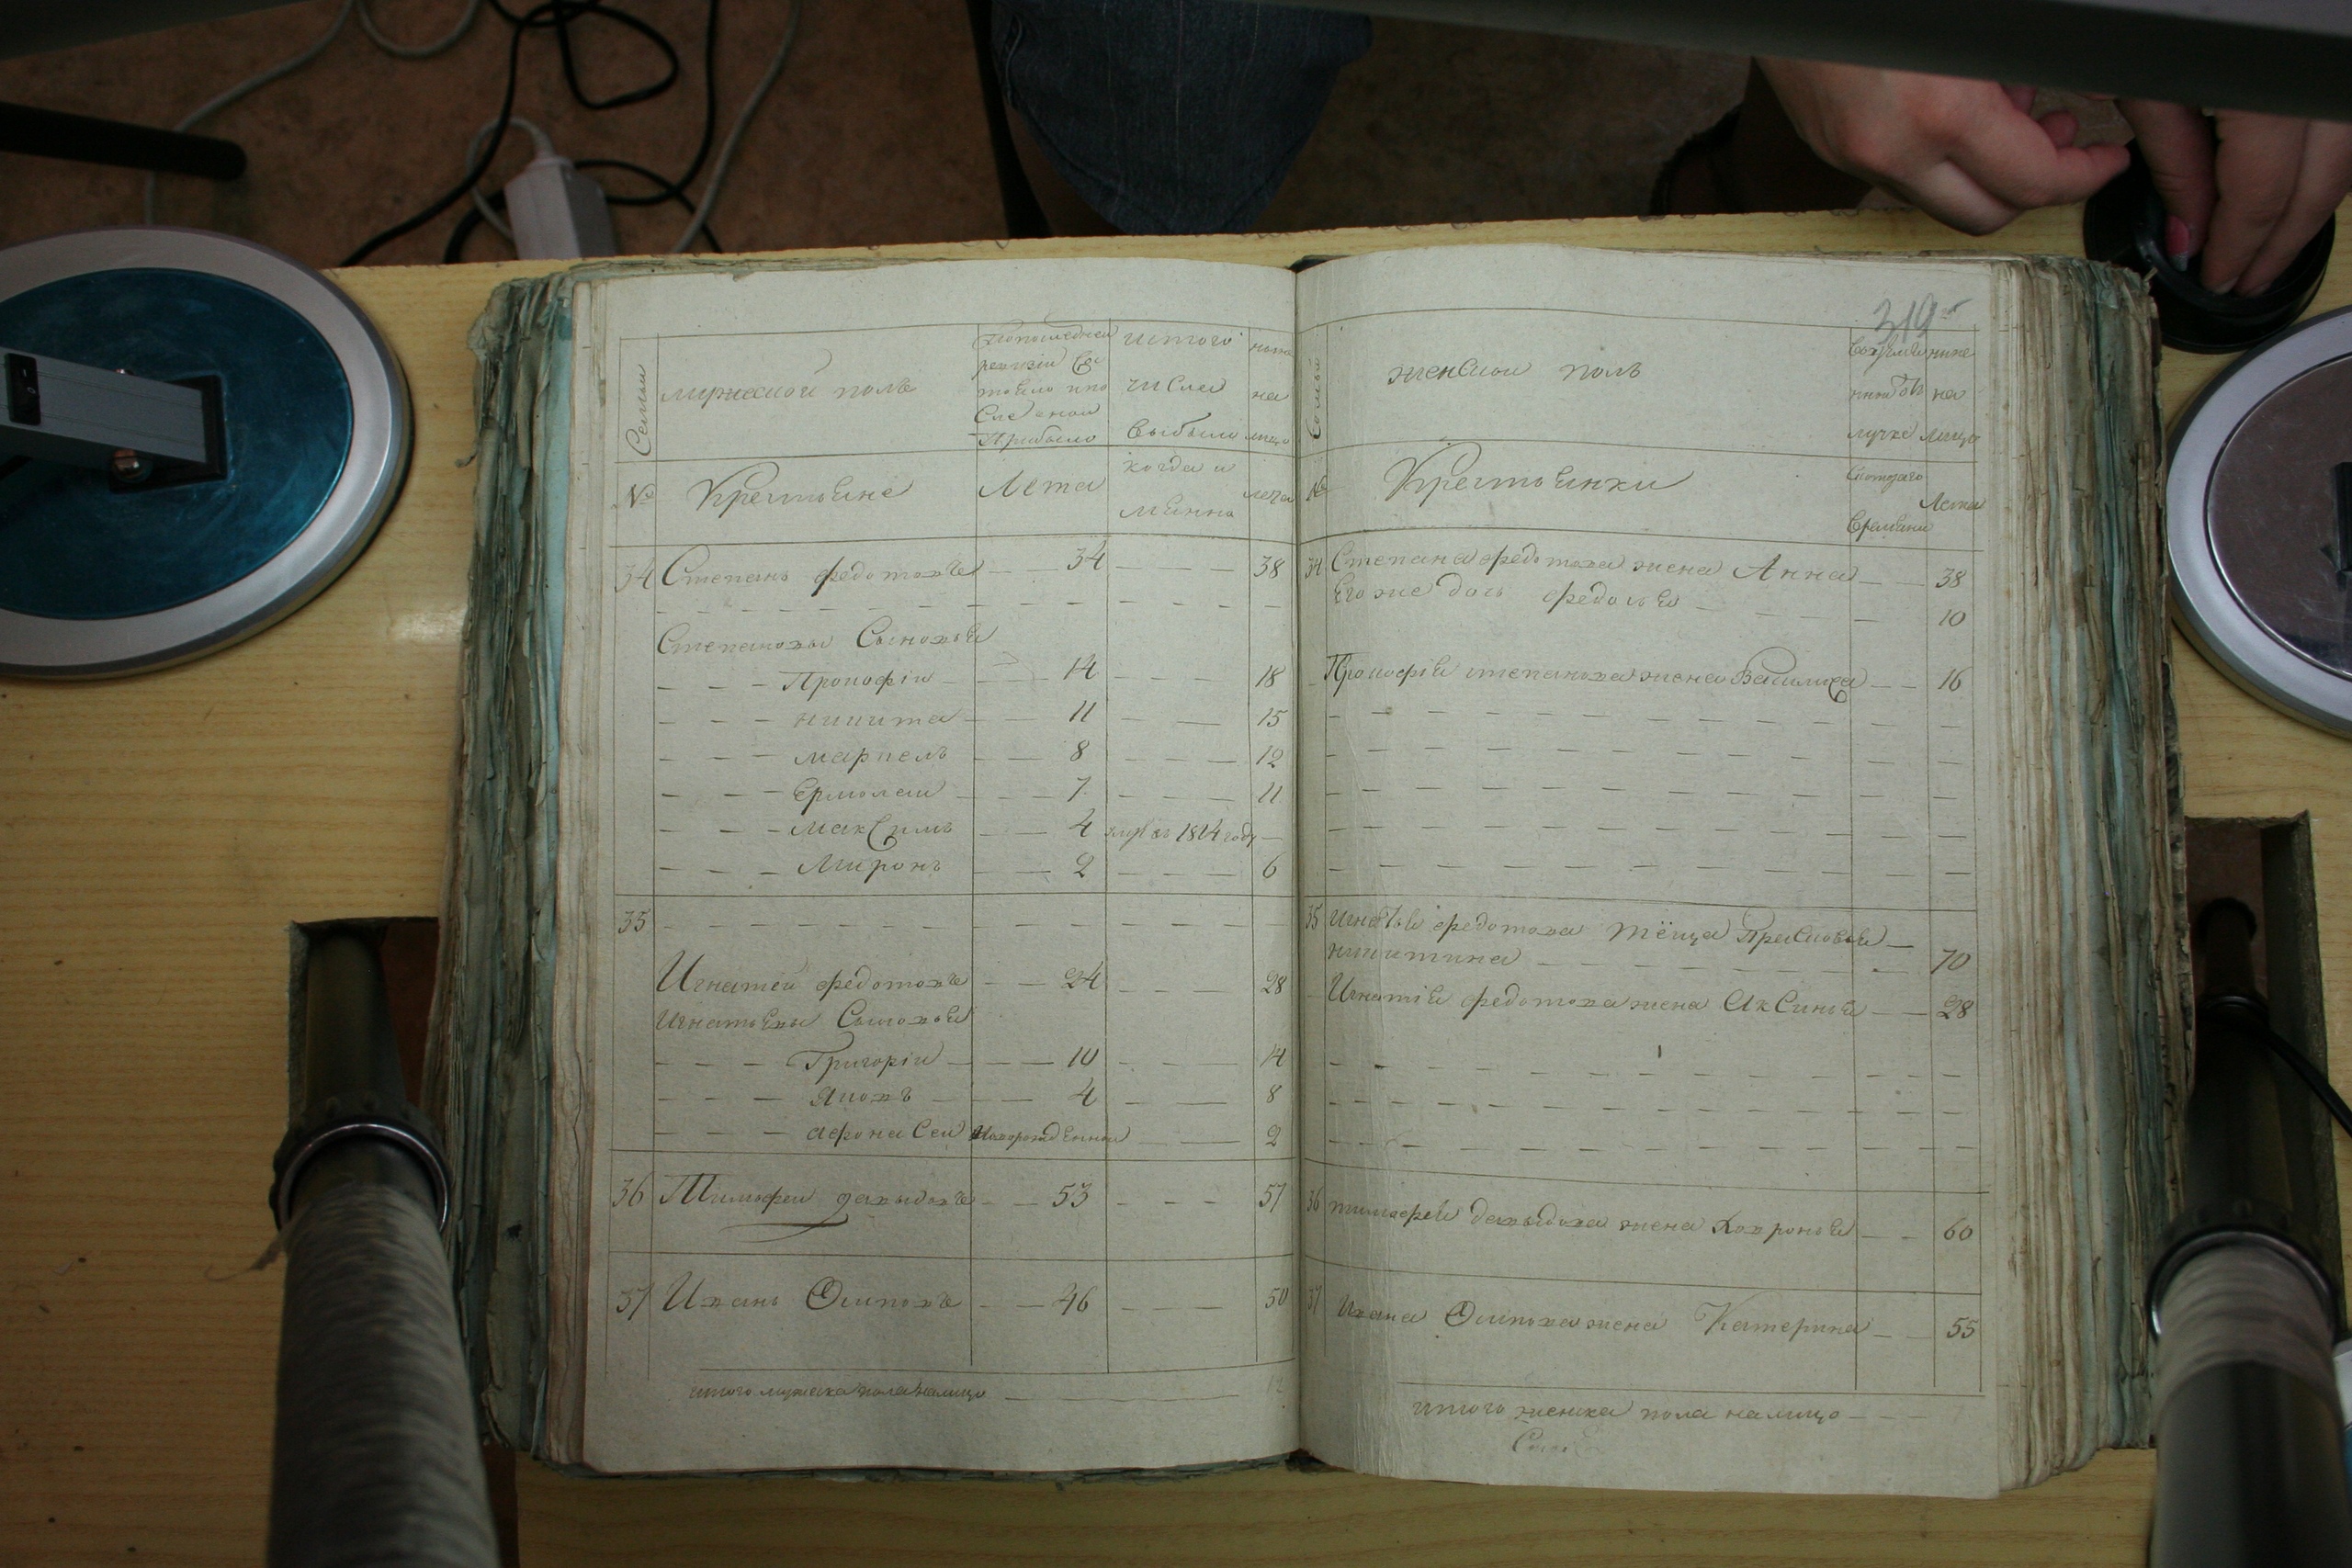 319
Семьи
мужеской полъ
По последней ревизiи состояло и после оной прибыло
изъ того числа выбыло
ныне на лицо
№
Крестьяне
Лета
когда и
лета
34 Степанъ федотовъ 34 38
Степановы Сыновья
Прокофiи 14 18
никита 11 15
маркелъ 8 12
Ермолаи 7 11
МакСимъ 4 умре въ 1814 году
Миронъ 2 6
35
Игнатеи федотовъ 24 28
Игнатьевы Сыновья
Григорiи 10 14
Яковъ 4 8
афонаСеи Новорожденнои 2
36 Тимофеи давыдовъ 53 57
37 Иванъ Осиповъ 46 50
итого мужска пола налицо
Семьи
женскои полъ
ныне на лицо
№
Крестьянки
Лета
34 Степана федотова жена Анна 38
Его же дочь федосья 10
Прокофiя степанова жена Василиса 16
35 Игнатья федотова тёща Прасковья
никитина 70
Игнатiя федотова жена АкСинья 28
36 тимофея давыдова жена Ховронья 60
37 Ивана Осипова жена Катерина 55
итого женска пола налицо